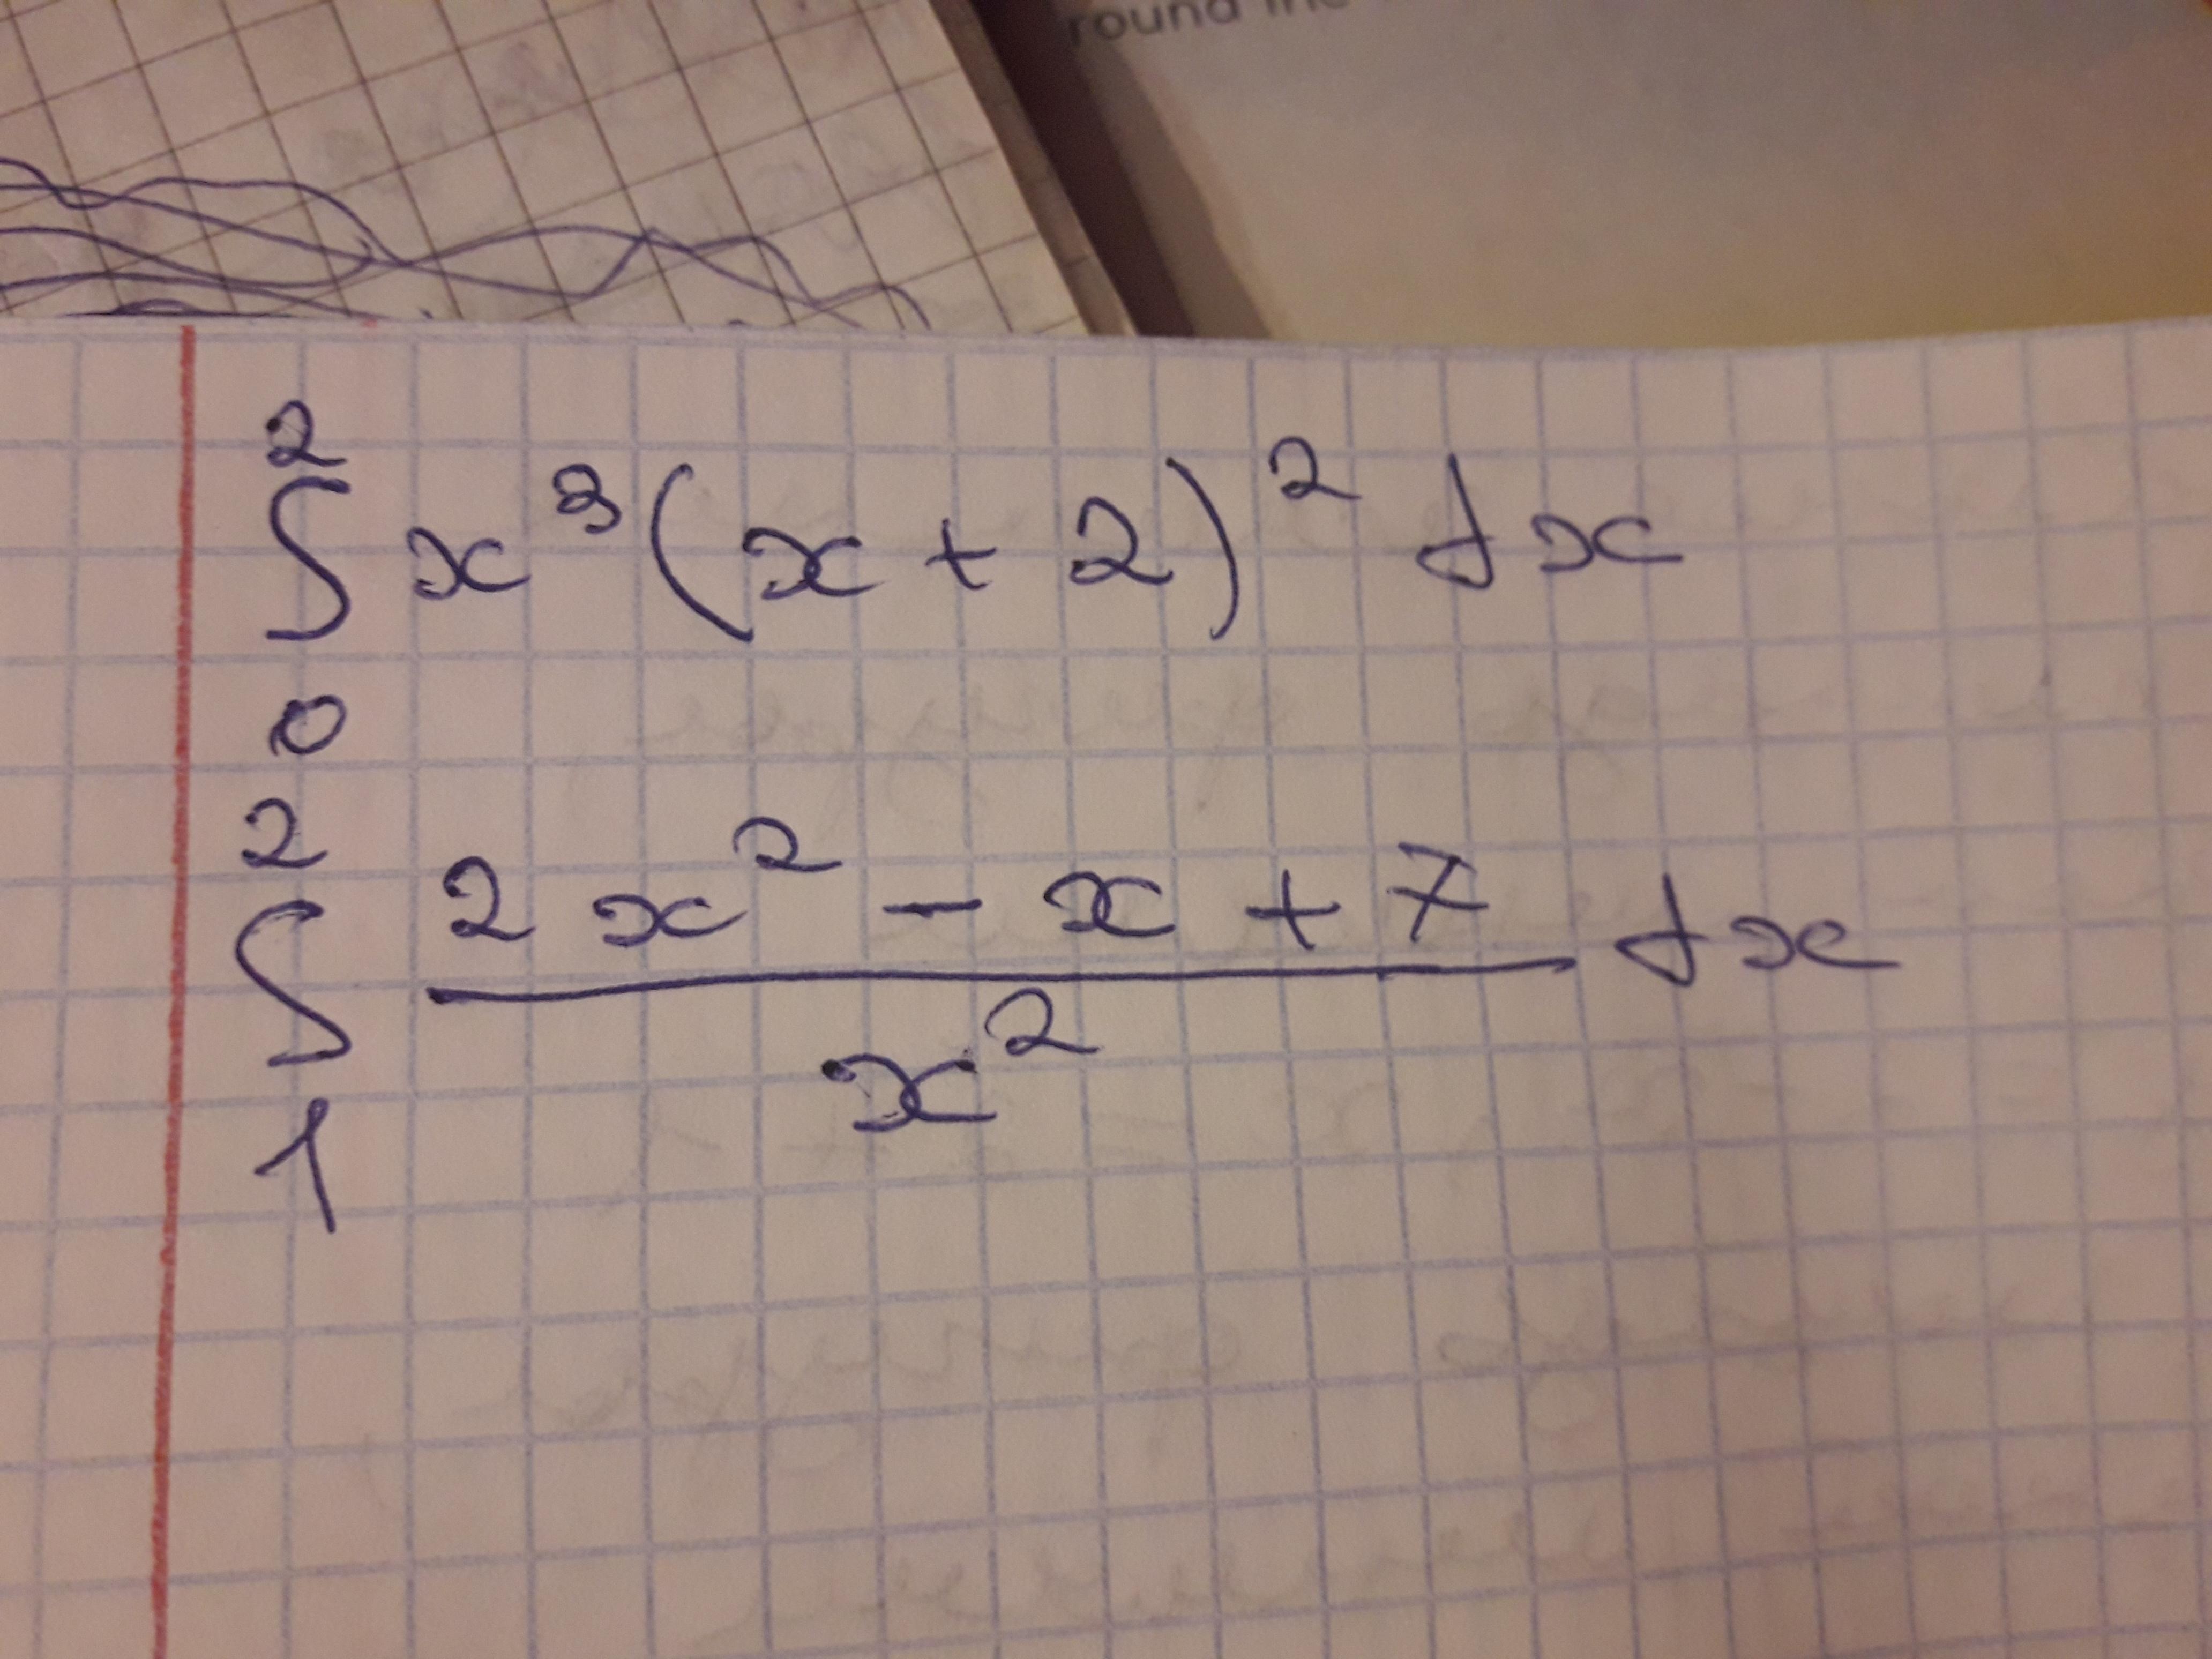 round the
∫₀² x³(x + 2)² dx
∫₁² (2x² - x + 7)/x² dx